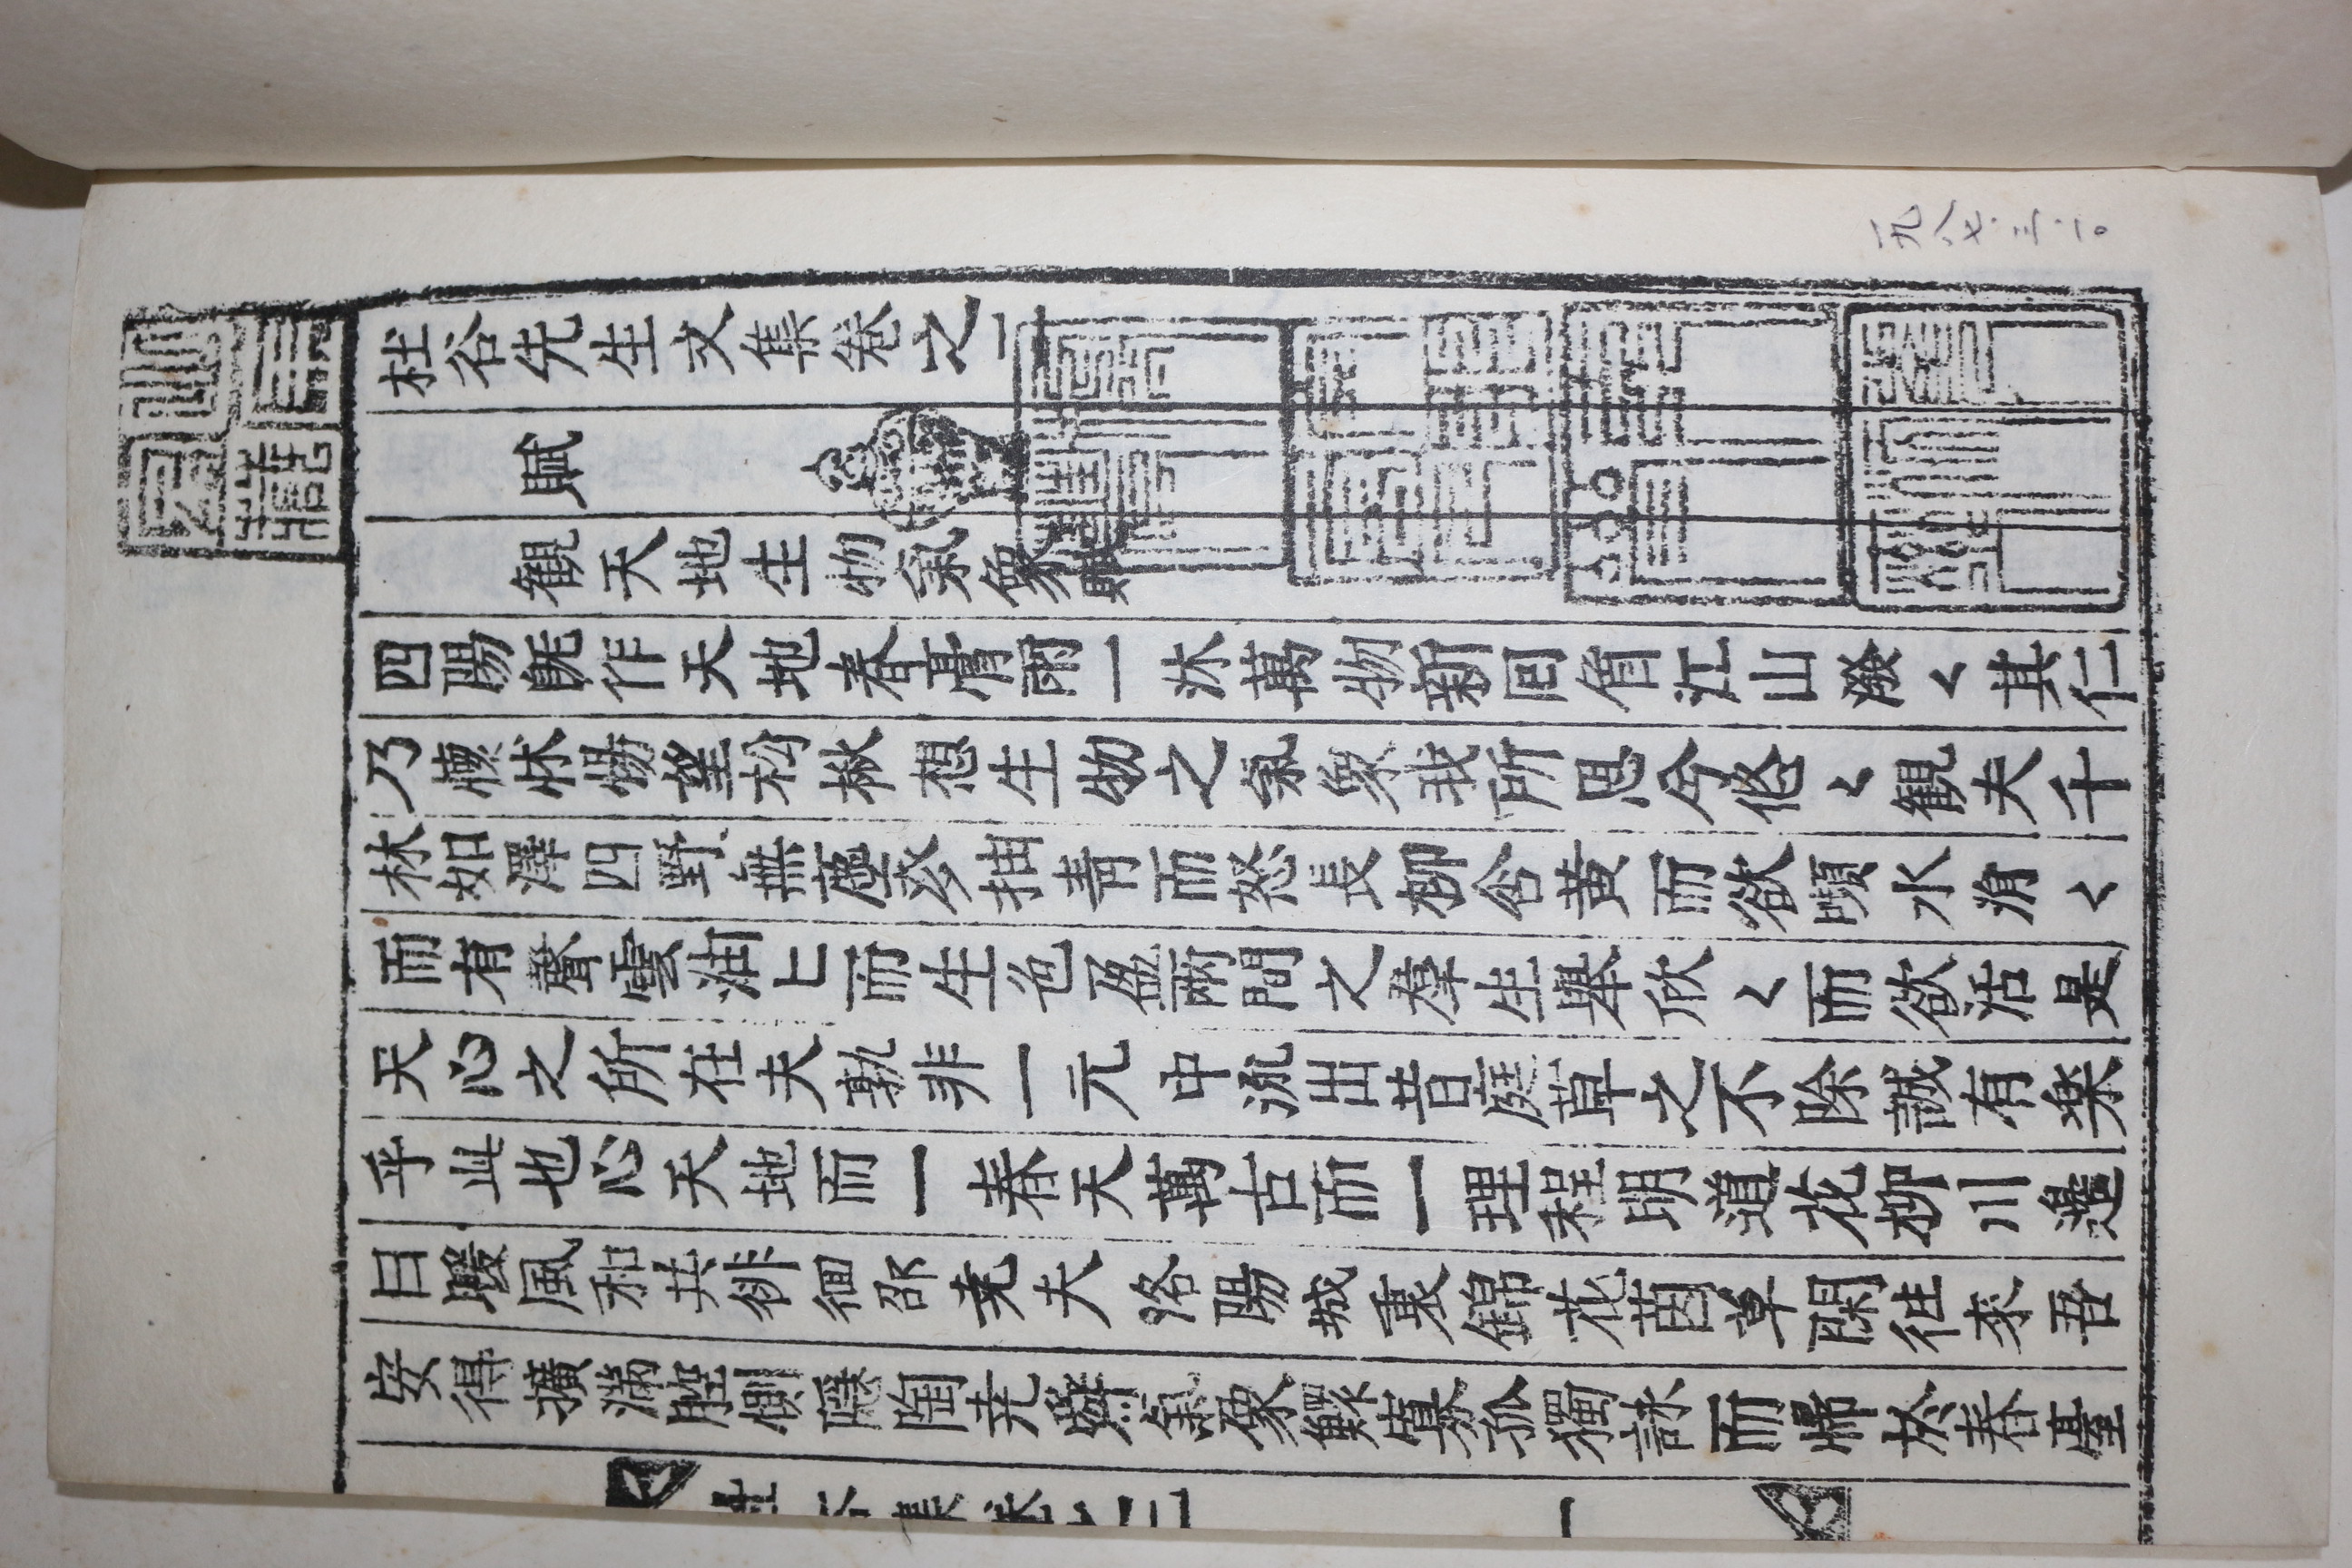 杜谷先生文集卷之一
賦
觀天地生物氣象賦
四陽旣作天地春膏雨一沐萬物新回首江山潑〻其仁
乃懷怵惕望松楸想生物之氣象我所思兮悠〻觀夫千
林如澤四野無塵麥抽靑而怒長柳含黃而欲嚬水涓〻
而有聲雲油〻而生色盈兩間之羣生擧欣〻而欲活是
天心之所在夫孰非一元中流出昔庭草之不除誠有楽
乎此也心天地而一春天萬古而一理程明道花柳川邊
日暖風和共徘徊邵堯夫洛陽城裏錦花茵草閑徃來吾
安得擴滿腔惻隱陶堯舜氣象鰥寡孤獨詠而歸於春臺
集卷之一
一
一九八七.三.一〇